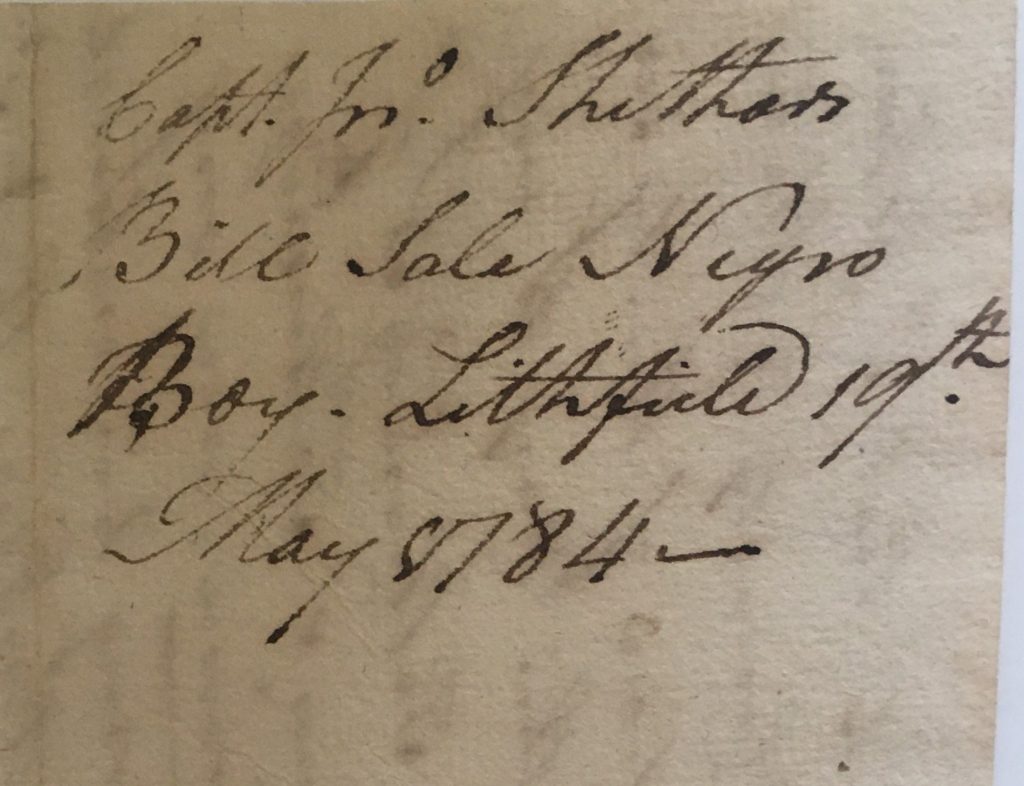 Capt. Jno. Shethars
Bill Sale Negro
Boy. Lithfield 19th.
May 1784 —